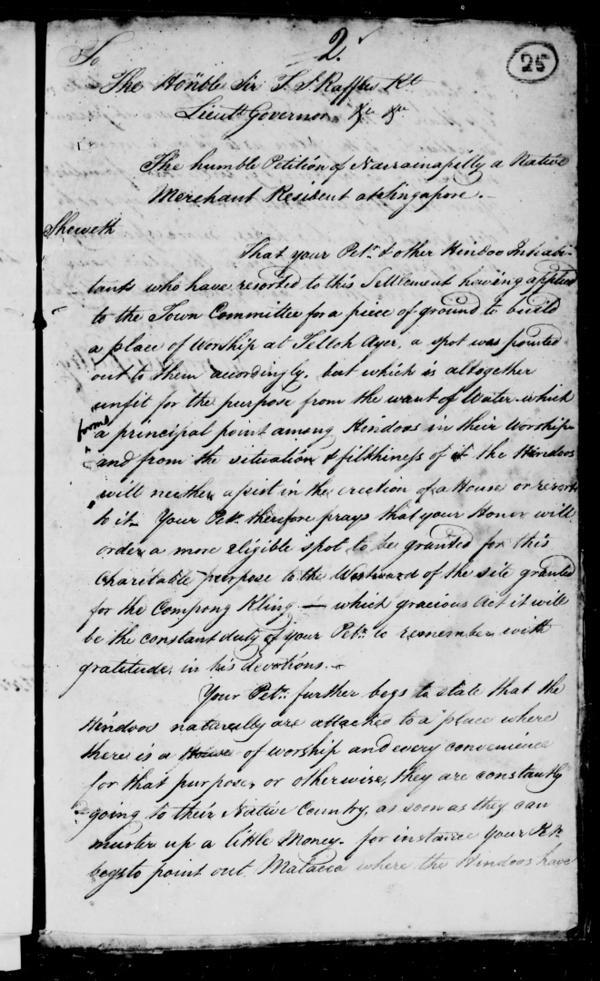 2.
25
To
The Honble Sir T. S. Raffles Kt
Lieutt Governor &c &c
The humble Petition of Narrainapilly a Native
Merchant Resident at Singapore.
Sheweth
That your Petr. & other Hindoo Inhabi-
tants who have resorted to this Settlement having applied
to the Town Committee for a piece of ground to build
a place of Worship at Telloh Ayer, a spot was pointed
out to them accordingly, but which is altogether
unfit for the purpose from the want of Water which
forms
a principal point among Hindoos in their Worship
and from the situation & filthiness of it the Hindoos
will neither assist in the erection of a House or resort
to it. Your Petr. therefore prays that your Honor will
order a more eligible spot to be granted for this
Charitable purpose to the Westward of the site granted
for the Compong Kling — which gracious Act it will
be the constant duty of your Petr. to remember with
gratitude in his devotions.
Your Petr. further begs to state that the
Hindoos naturally are attached to a place where
there is a House of worship and every convenience
for that purpose, or otherwise, they are constantly
going to their Native Country, as soon as they can
muster up a little Money. for instance your
begs to point out Malacca where the Hindoos have